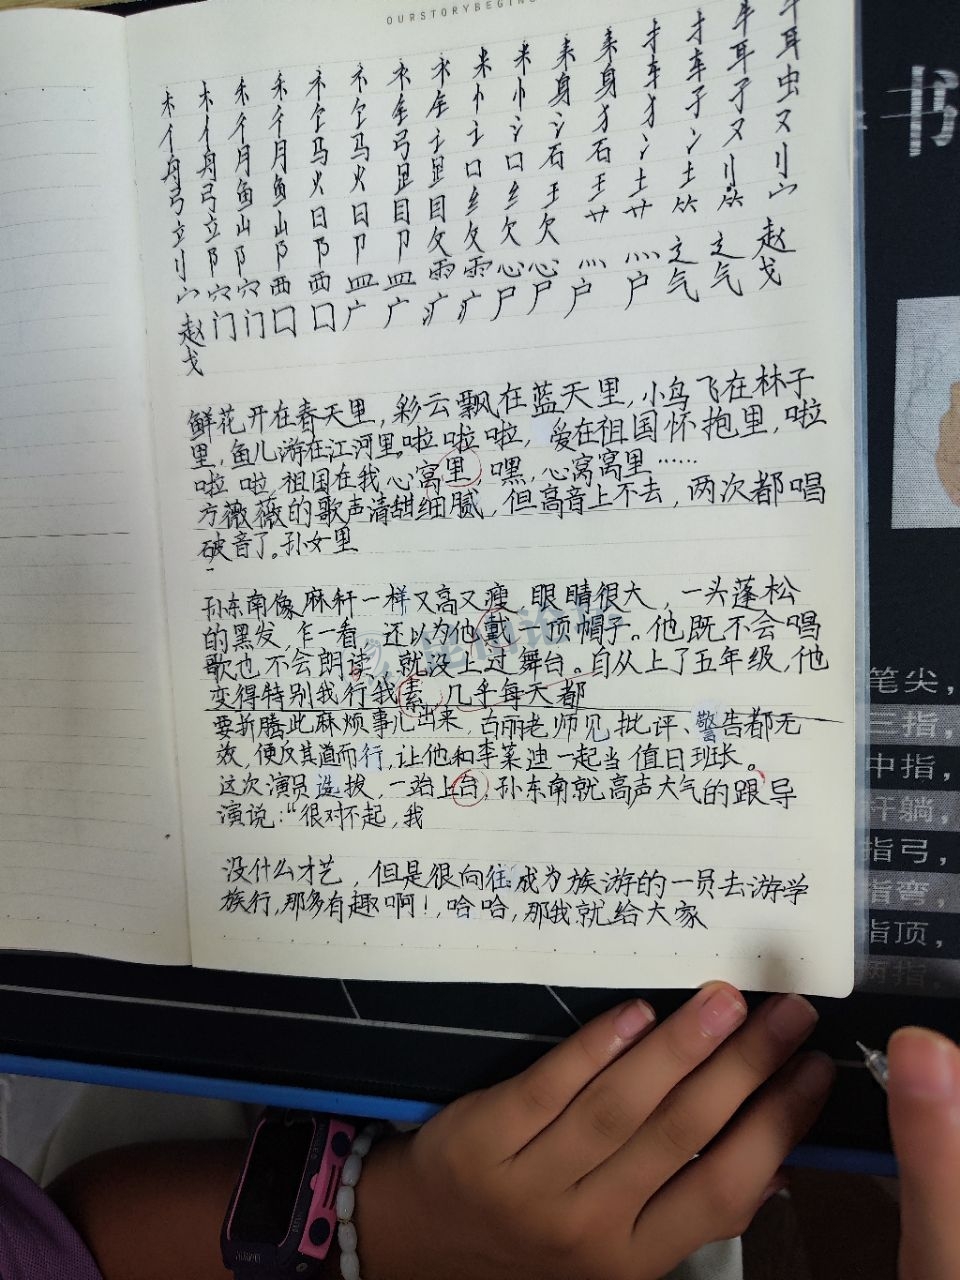 OURSTORYBEGINS
木 木 禾 禾 礻 礻 衤 衤 米 米 耒 耒 扌 扌 牜 牜
亻 亻 彳 彳 饣 饣 钅 钅 忄 忄 身 身 车 车 耳 耳
舟 舟 月 月 马 马 弓 犭 犭 孑 孑 虫
弓 弓 鱼 鱼 火 火 𧾷 𧾷 口 口 石 石 氵 冫 又 又
立 立 山 山 日 日 目 目 纟 纟 王 王 土 土 刂 刂
刂 阝 阝 阝 阝 卩 卩 夂 夂 欠 欠 艹 艹 ⺮ ⺮ 宀
宀 穴 穴 西 西 皿 皿 雨 雨 心 心 灬 灬 辶 辶 赵
赵 门 门 囗 囗 广 广 疒 疒 尸 尸 户 户 气 气 戈
戈
鲜花开在春天里，彩云飘在蓝天里，小鸟飞在林子
里，鱼儿游在江河里。啦啦啦，爱在祖国怀抱里，啦
啦啦，祖国在我心窝里，嘿，心窝窝里……
方薇薇的歌声清甜细腻，但高音上不去，两次都唱
破音了。孙女里
孙东南像麻秆一样又高又瘦 眼睛很大，一头蓬松
的黑发，乍一看，还以为他戴一顶帽子。他既不会唱
歌也不会朗读，就没上过舞台。自从上了五年级，他
变得特别我行我素，几乎每天都
要折腾些麻烦事儿出来，白丽老师见批评、警告都无
效，便反其道而行，让他和李菜迪一起当值日班长。
这次演员选拔，一站上台，孙东南就高声大气的跟导
演说：“很对不起，我
没什么才艺，但是很向往成为族游的一员去游学
族行，那多有趣啊！，哈哈，那我就给大家
书
笔尖，
三指，
中指，
指弓，
指弯，
指顶，